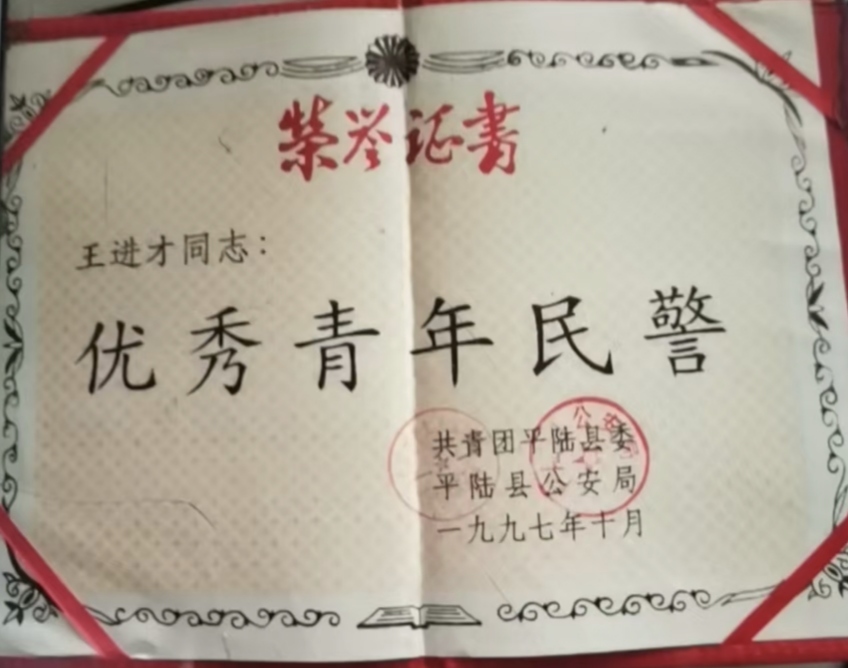 榮誉证書
王进才同志：
优秀青年民警
共青团平陆县委
平陆县公安局
一九九七年十月